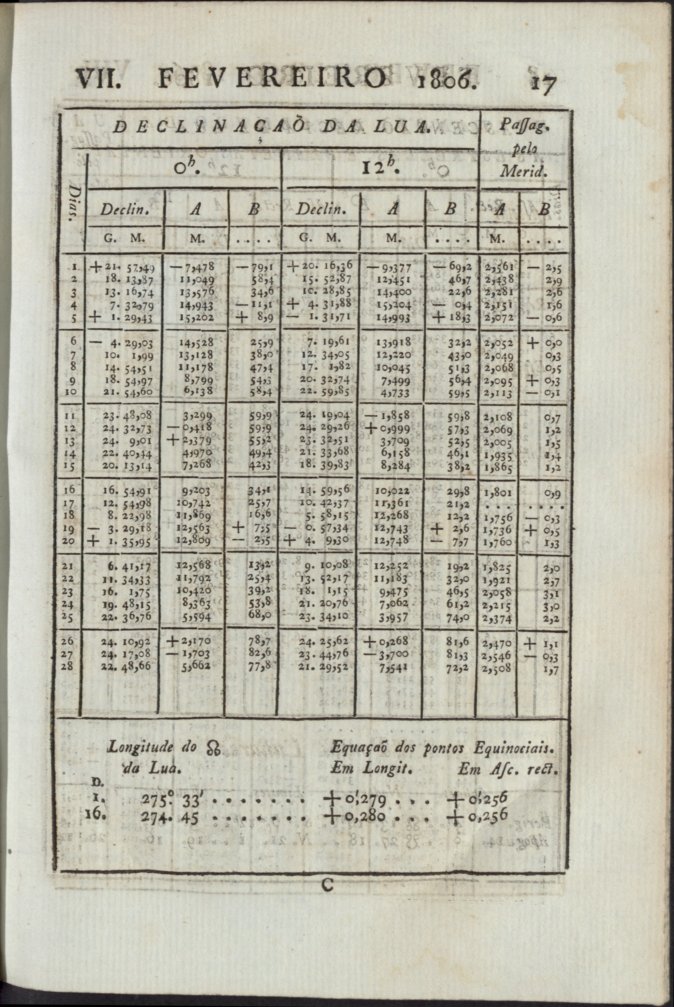 VII. FEVEREIRO 1806. 17
DECLINAÇAÕ DA LUA. Paſſag. pelo Merid.
0h. 12h.
Dias. Declin. A B Declin. A B A B
G. M. M. .... G. M. M. .... M. ....
1 +21. 57,49 —7,478 —79,1 +20. 16,36 —9,377 —69,2 2,561 — 2,5
2 18. 13,87 11,049 58,4 15. 52,87 12,451 46,7 2,438 2,9
3 13. 16,74 13,576 34,6 10. 28,85 14,400 22,6 2,281 2,6
4 7. 32,79 14,943 —11,1 + 4. 31,88 15,204 — 0,4 2,151 1,6
5 + 1. 29,43 15,202 + 8,9 — 1. 31,71 14,993 + 18,3 2,072 — 0,6
6 — 4. 29,03 14,528 25,9 7. 19,61 13,918 32,2 2,052 + 0,0
7 10. 1,99 13,128 38,0 12. 34,05 12,220 43,0 2,049 0,3
8 14. 54,51 11,178 47,4 17. 1,82 10,045 51,3 2,068 0,5
9 18. 54,97 8,799 54,3 20. 32,74 7,499 56,4 2,095 + 0,3
10 21. 54,60 6,138 58,4 22. 59,85 4,733 59,5 2,113 — 0,1
11 23. 48,08 3,299 59,9 24. 19,04 —1,858 59,8 2,108 0,7
12 24. 32,73 —0,418 59,9 24. 29,26 +0,999 57,3 2,069 1,2
13 24. 9,01 +2,379 55,2 23. 32,51 3,709 52,5 2,005 1,5
14 22. 40,34 4,970 49,4 21. 33,68 6,158 46,1 1,935 1,4
15 20. 13,14 7,268 42,3 18. 39,83 8,284 38,2 1,865 1,2
16 16. 54,91 9,203 34,1 14. 59,56 10,022 29,8 1,801 0,9
17 12. 54,98 10,742 25,7 10. 42,37 11,361 21,2 .... ....
18 8. 22,98 11,869 16,6 5. 58,15 12,268 12,2 1,756 — 0,3
19 — 3. 29,18 12,563 + 7,5 — 0. 57,34 12,743 + 2,6 1,736 + 0,5
20 + 1. 35,95 12,809 — 2,5 + 4. 9,30 12,748 — 7,7 1,760 1,3
21 6. 41,17 12,568 13,2 9. 10,08 12,252 19,2 1,825 2,0
22 11. 34,33 11,792 25,4 13. 52,17 11,183 32,0 1,921 2,7
23 16. 1,75 10,420 39,2 18. 1,15 9,475 46,5 2,058 3,1
24 19. 48,15 8,363 53,8 21. 20,76 7,062 61,2 2,215 3,0
25 22. 36,76 5,594 68,0 23. 34,10 3,957 74,0 2,374 2,2
26 24. 10,92 +2,170 78,7 24. 25,62 +0,268 81,6 2,470 + 1,1
27 24. 17,08 —1,703 82,6 23. 44,76 —3,700 81,3 2,546 — 0,3
28 22. 48,66 5,662 77,8 21. 29,52 7,541 72,2 2,508 1,7
Longitude do ☊ Equaçaõ dos pontos Equinociais.
da Lua. Em Longit. Em Aſc. rect.
D.
1. 275.° 33′ ....... +0,′279 ... +0,′256
16. 274. 45 ....... +0,280 ... +0,256
C